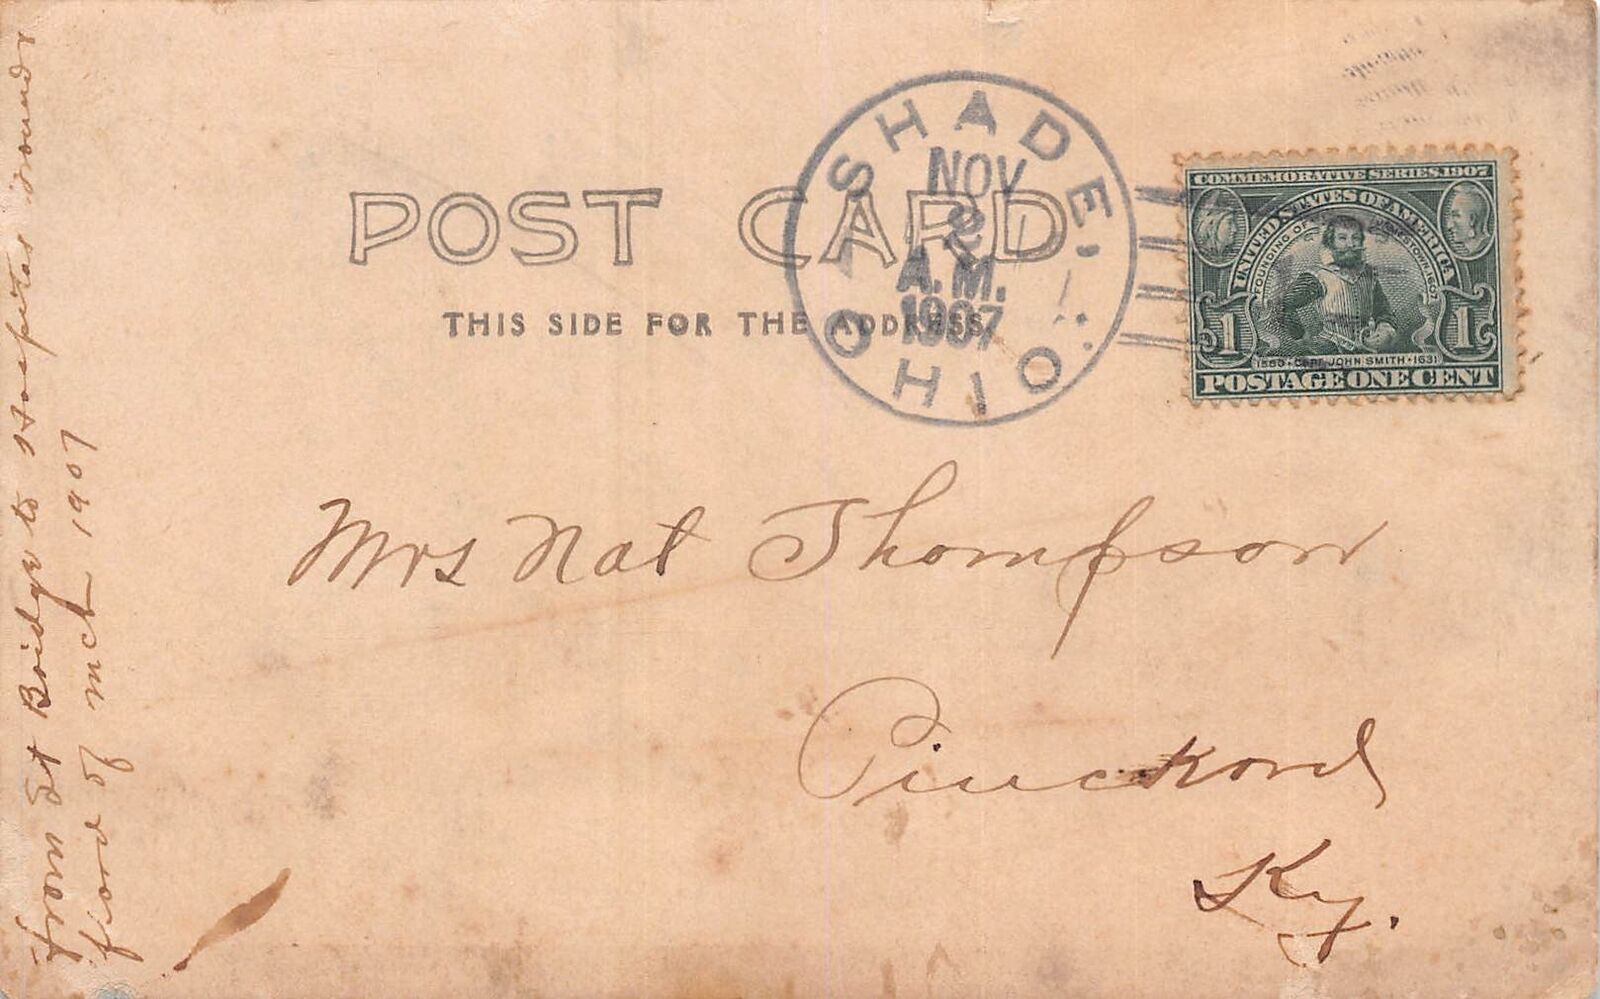 POST CARD
THIS SIDE FOR THE ADDRESS.
SHADE
NOV
2
A.M.
1907
OHIO
COMMEMORATIVE SERIES 1907
UNITED STATES OF AMERICA
FOUNDING OF JAMESTOWN 1607
1 1
1580 · CAPT. JOHN SMITH · 1631
POSTAGE ONE CENT
Mrs Nat Thompson
Pinckord
Ky.
from St Bridge to Hospital round
1907